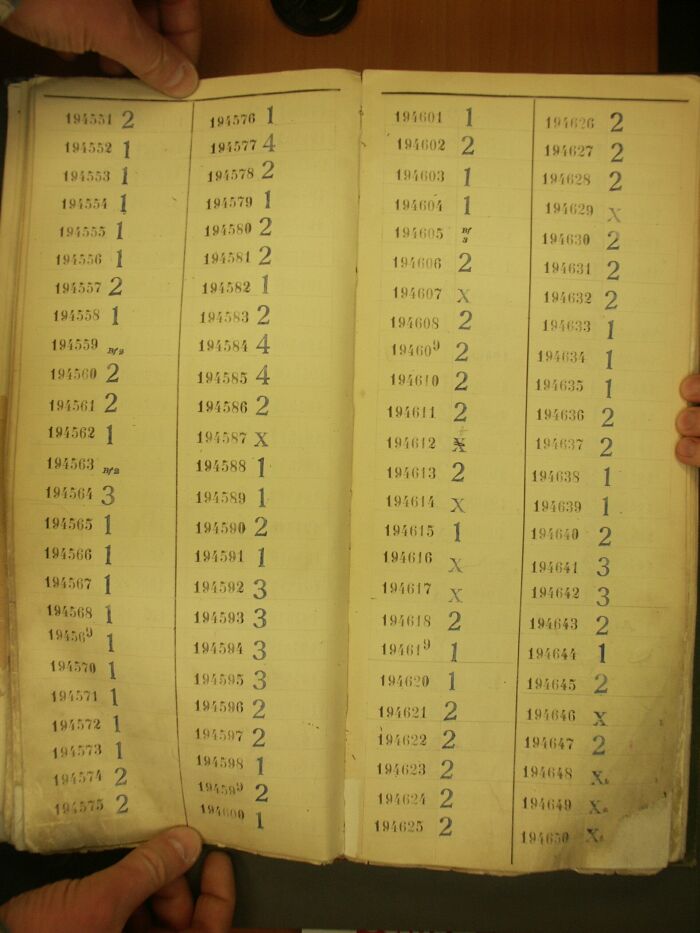 194551 2
194552 1
194553 1
194554 1
194555 1
194556 1
194557 2
194558 1
194559 Bf 2
194560 2
194561 2
194562 1
194563 Bf 2
194564 3
194565 1
194566 1
194567 1
194568 1
194569 1
194570 1
194571 1
194572 1
194573 1
194574 2
194575 2
194576 1
194577 4
194578 2
194579 1
194580 2
194581 2
194582 1
194583 2
194584 4
194585 4
194586 2
194587 X
194588 1
194589 1
194590 2
194591 1
194592 3
194593 3
194594 3
194595 3
194596 2
194597 2
194598 1
194599 2
194600 1
194601 1
194602 2
194603 1
194604 1
194605 Bf 3
194606 2
194607 X
194608 2
194609 2
194610 2
194611 2
194612 X
194613 2
194614 X
194615 1
194616 X
194617 X
194618 2
194619 1
194620 1
194621 2
194622 2
194623 2
194624 2
194625 2
194626 2
194627 2
194628 2
194629 X
194630 2
194631 2
194632 2
194633 1
194634 1
194635 1
194636 2
194637 2
194638 1
194639 1
194640 2
194641 3
194642 3
194643 2
194644 1
194645 2
194646 X
194647 2
194648 X.
194649 X.
194650 X.